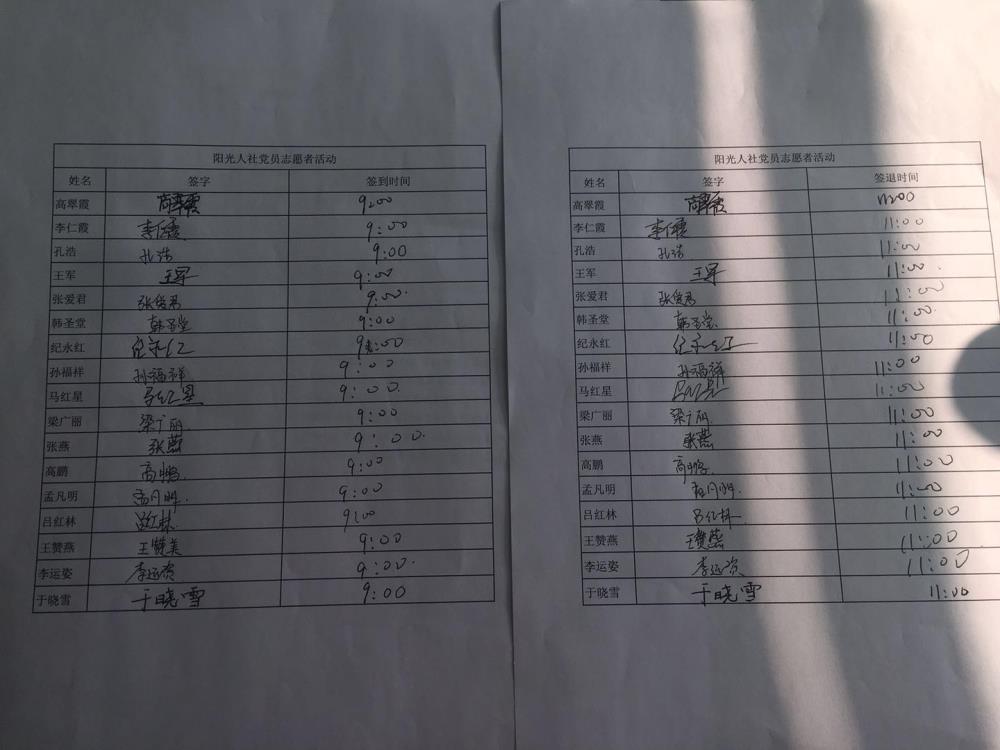 阳光人社党员志愿者活动
姓名 签字 签到时间
高翠霞 高翠霞 9:00
李仁霞 李仁霞 9:00
孔浩 孔浩 9:00
王军 王军 9:00
张爱君 张爱君 9:00
韩圣堂 韩圣堂 9:00
纪永红 纪永红 9:00
孙福祥 孙福祥 9:00
马红星 马红星 9:00
梁广丽 梁广丽 9:00
张燕 张燕 9:00
高鹏 高鹏 9:00
孟凡明 孟凡明 9:00
吕红林 吕红林 9:00
王赞燕 王赞美 9:00
李运姿 李运姿 9:00
于晓雪 于晓雪 9:00
阳光人社党员志愿者活动
姓名 签字 签退时间
高翠霞 高翠霞 11:00
李仁霞 李仁霞 11:00
孔浩 孔浩 11:00
王军 王军 11:00
张爱君 张爱君 11:00
韩圣堂 韩圣堂 11:00
纪永红 纪永红 11:00
孙福祥 孙福祥 11:00
马红星 马红星 11:00
梁广丽 梁广丽 11:00
张燕 张燕 11:00
高鹏 高鹏 11:00
孟凡明 孟凡明 11:00
吕红林 吕红林 11:00
王赞燕 王赞燕 11:00
李运姿 李运姿 11:00
于晓雪 于晓雪 11:00